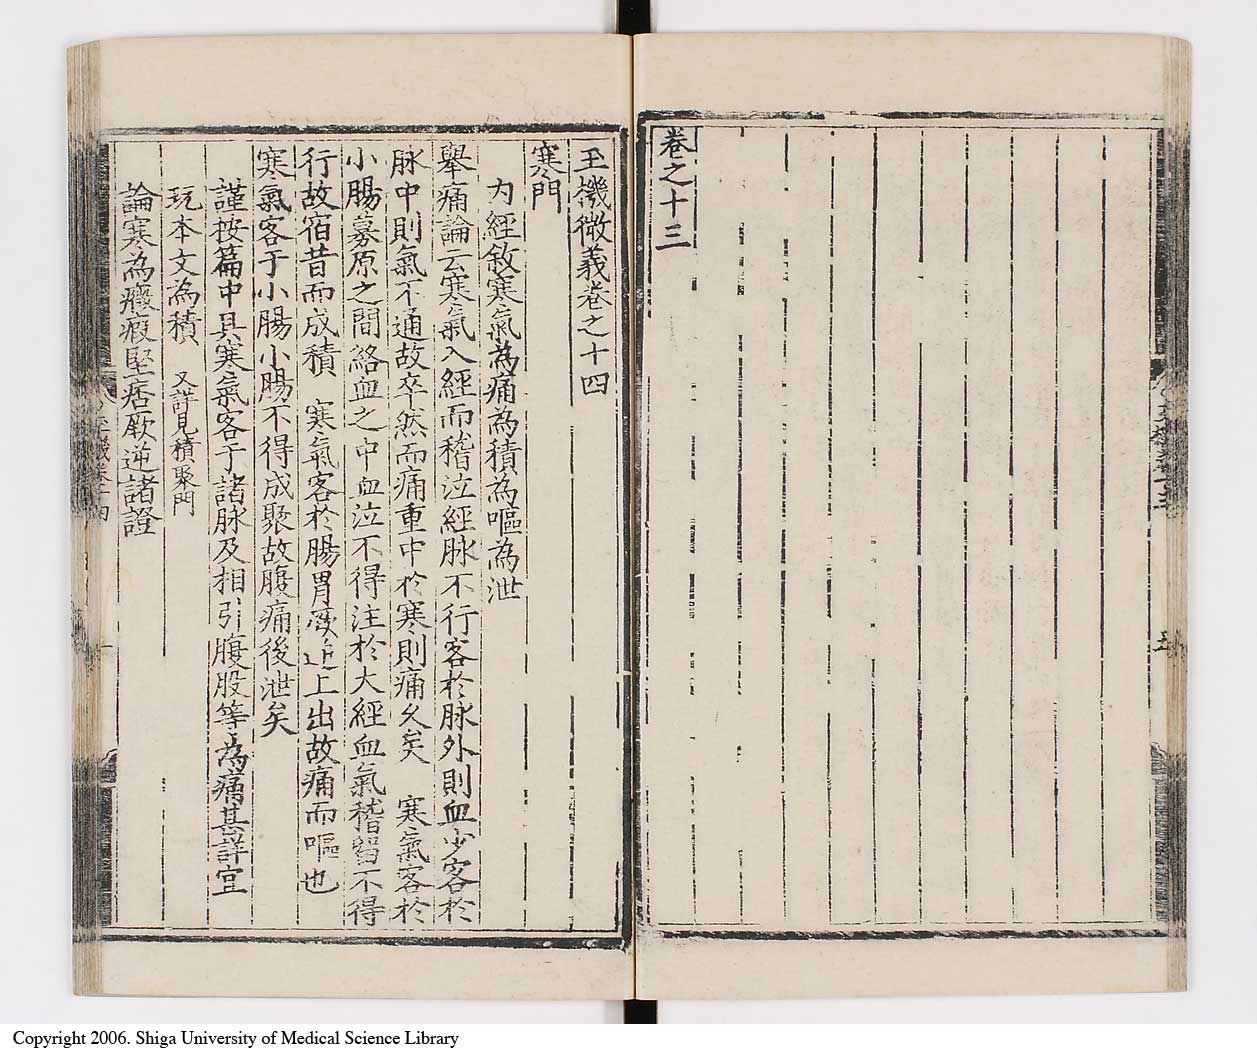 卷之十三
玉機微義卷之十四
寒門
內經敘寒氣為痛為積為嘔為泄
舉痛論云寒氣入經而稽泣經脉不行客於脉外則血少客於
脉中則氣不通故卒然而痛重中於寒則痛久矣　寒氣客於
小腸募原之間絡血之中血泣不得注於大經血氣稽留不得
行故宿昔而成積　寒氣客於腸胃厥逆上出故痛而嘔也
寒氣客于小腸小腸不得成聚故腹痛後泄矣
謹按篇中具寒氣客于諸脉及相引腹股等為痛甚詳宜
玩本文為積　又詳見積聚門
論寒為癥瘕堅痞厥逆諸證
玉機卷十四
一
Copyright 2006. Shiga University of Medical Science Library